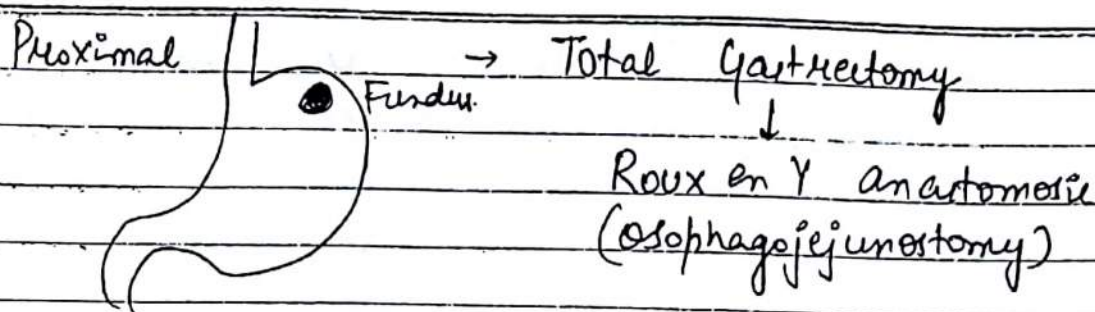 Proximal → Total Gastrectomy
Fundus.
↓
Roux en Y anastomosis
(osophagojejunostomy)